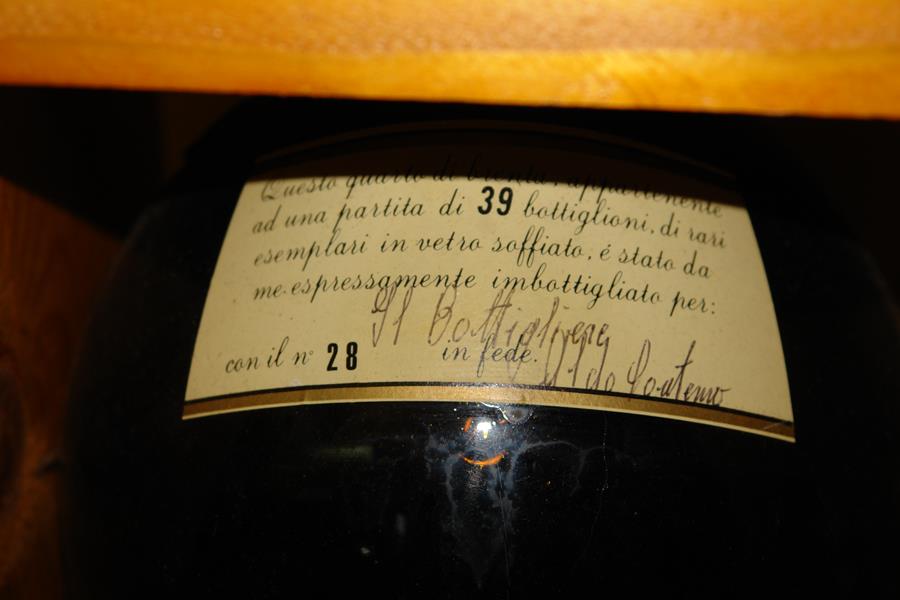 Questo quarto di brenta, appartenente
ad una partita di 39 bottiglioni, di rari
esemplari in vetro soffiato, é stato da
me espressamente imbottigliato per:
Il Bottigliere
con il n° 28 in fede.
Aldo Conterno